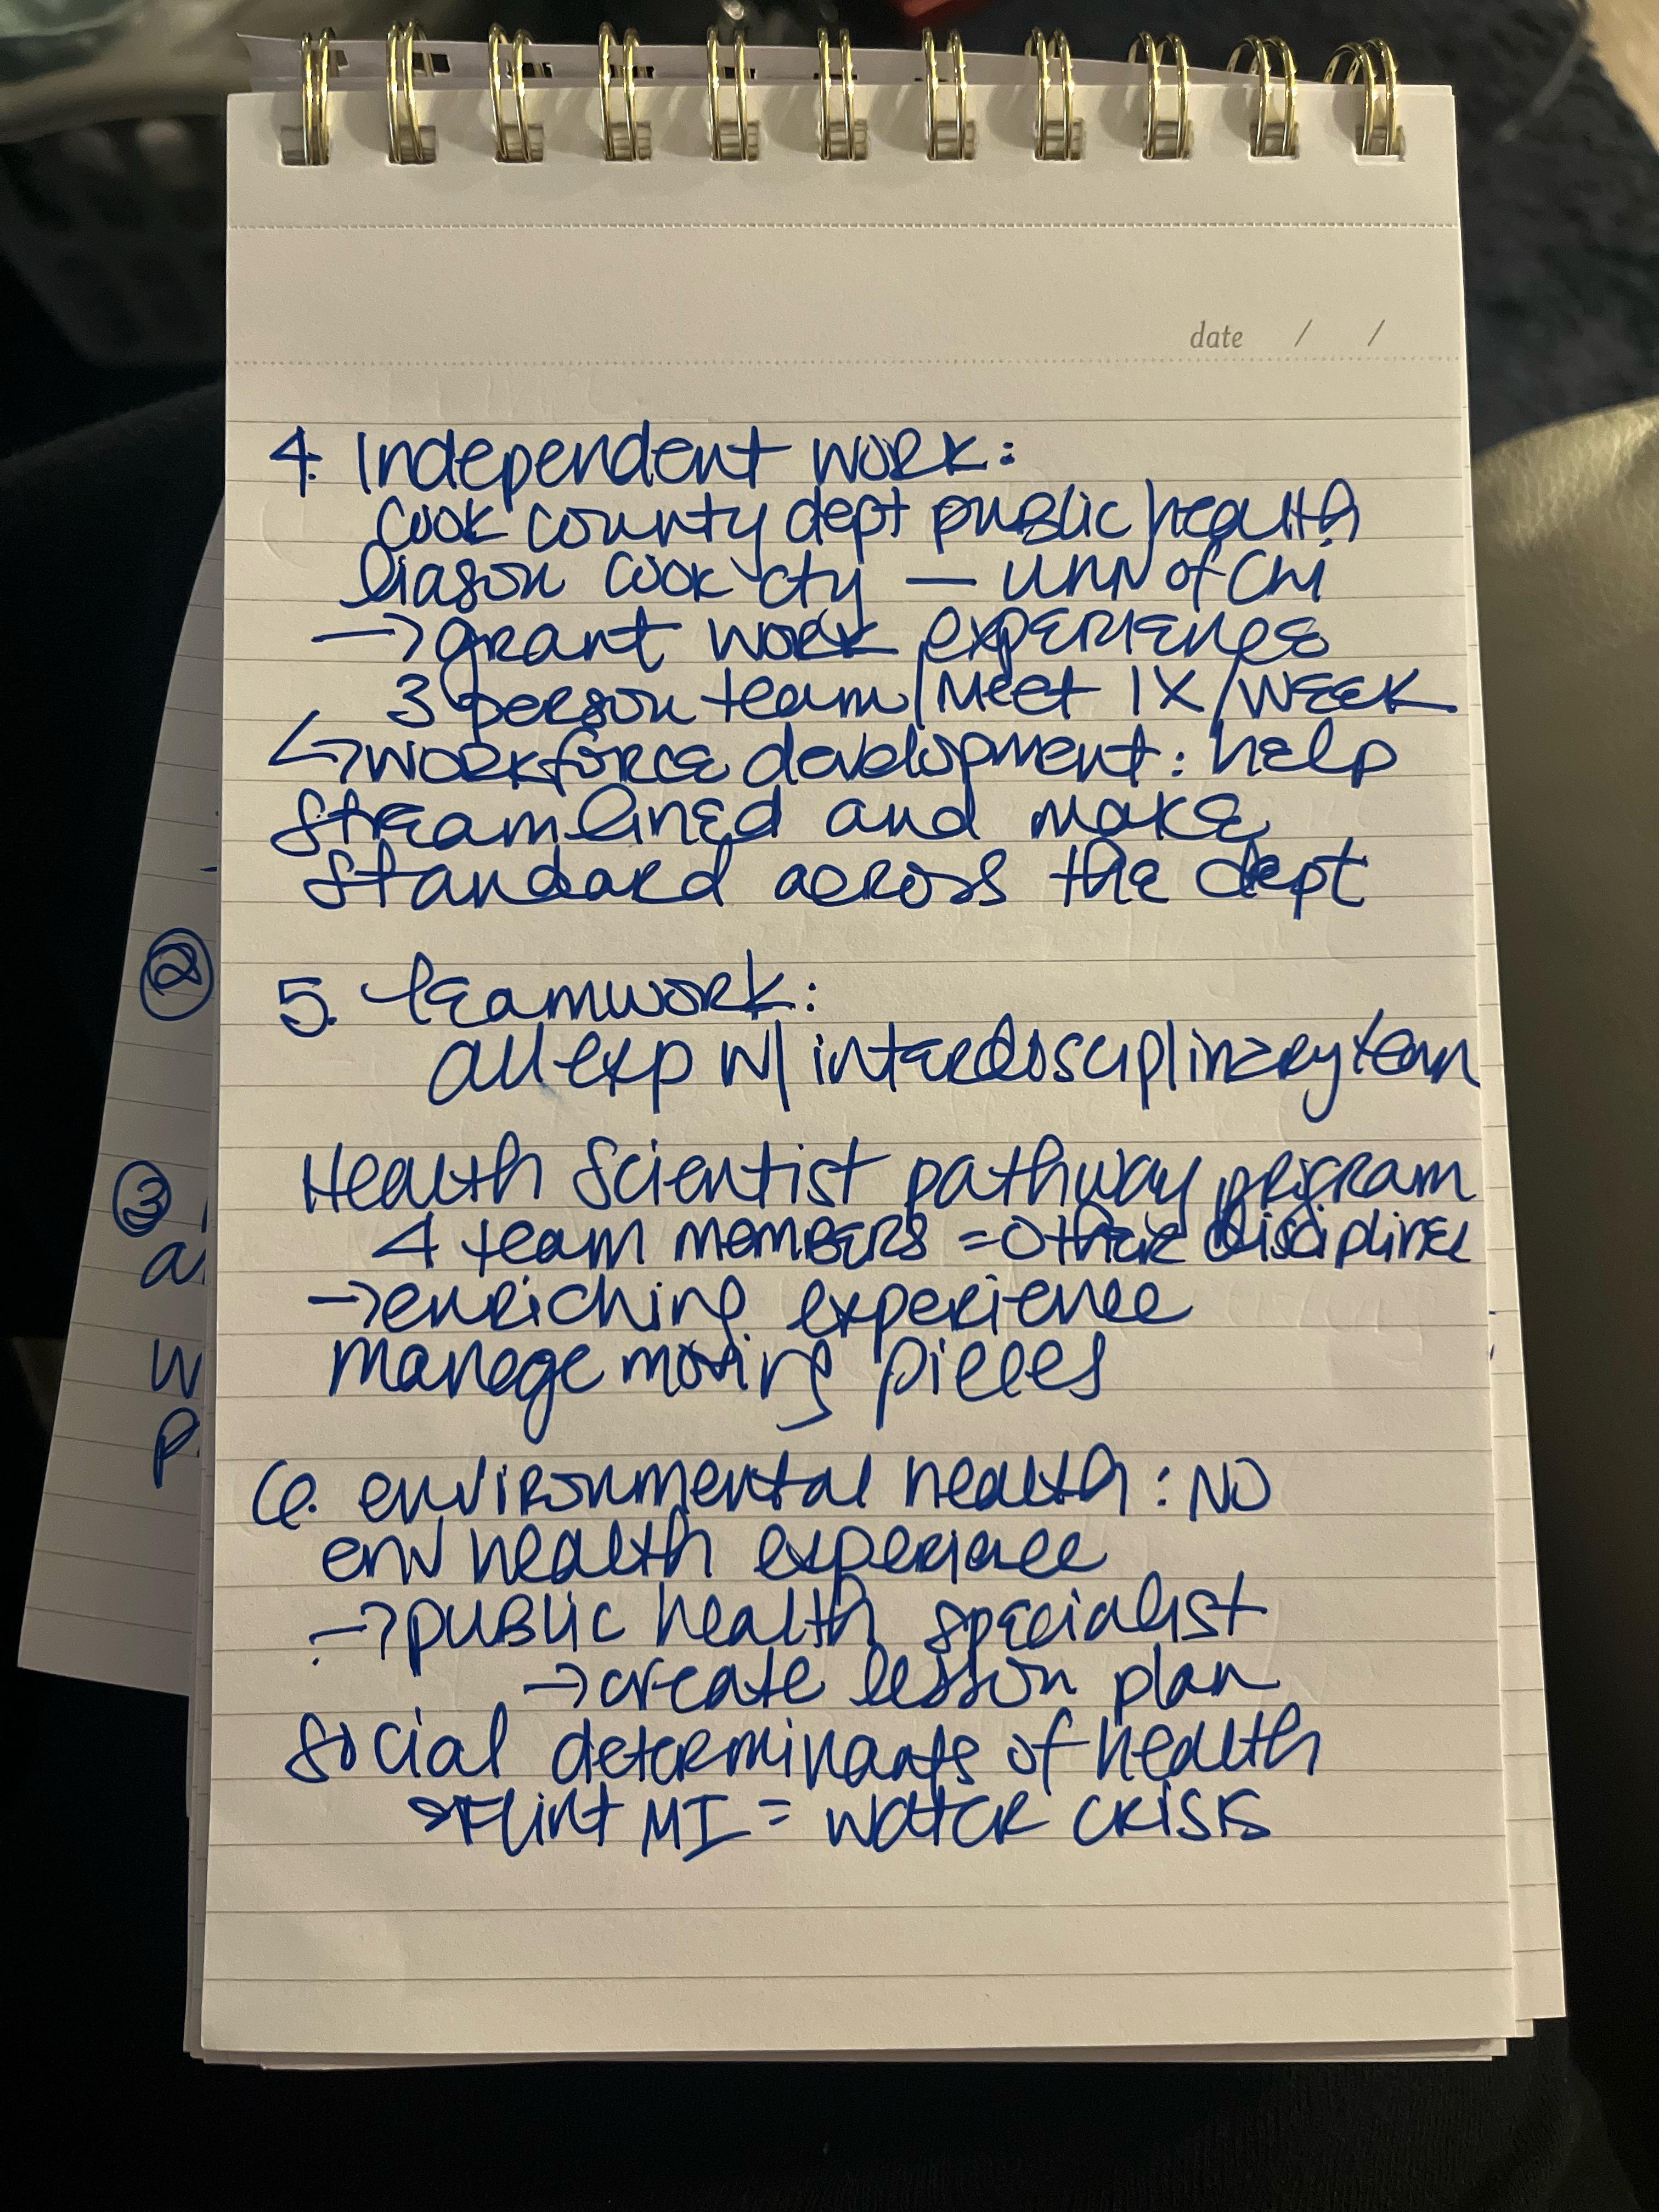 date / /
4. Independent work:
Cook county dept public health
liason Cook cty — UNN of Chi
→ grant work experience
3 person team/Meet 1X/week
↳ workforce development: help
streamlined and make
standard across the dept
②
5. teamwork:
all exp w/ interdisciplinary team
③
Health Scientist pathway program
4 team members = other discipline
→ enriching experience
manage moving pieces
6. environmental health: NO
env health experience
→ public health specialist
→ create lesson plan
social determinants of health
→ Flint MI = water crisis